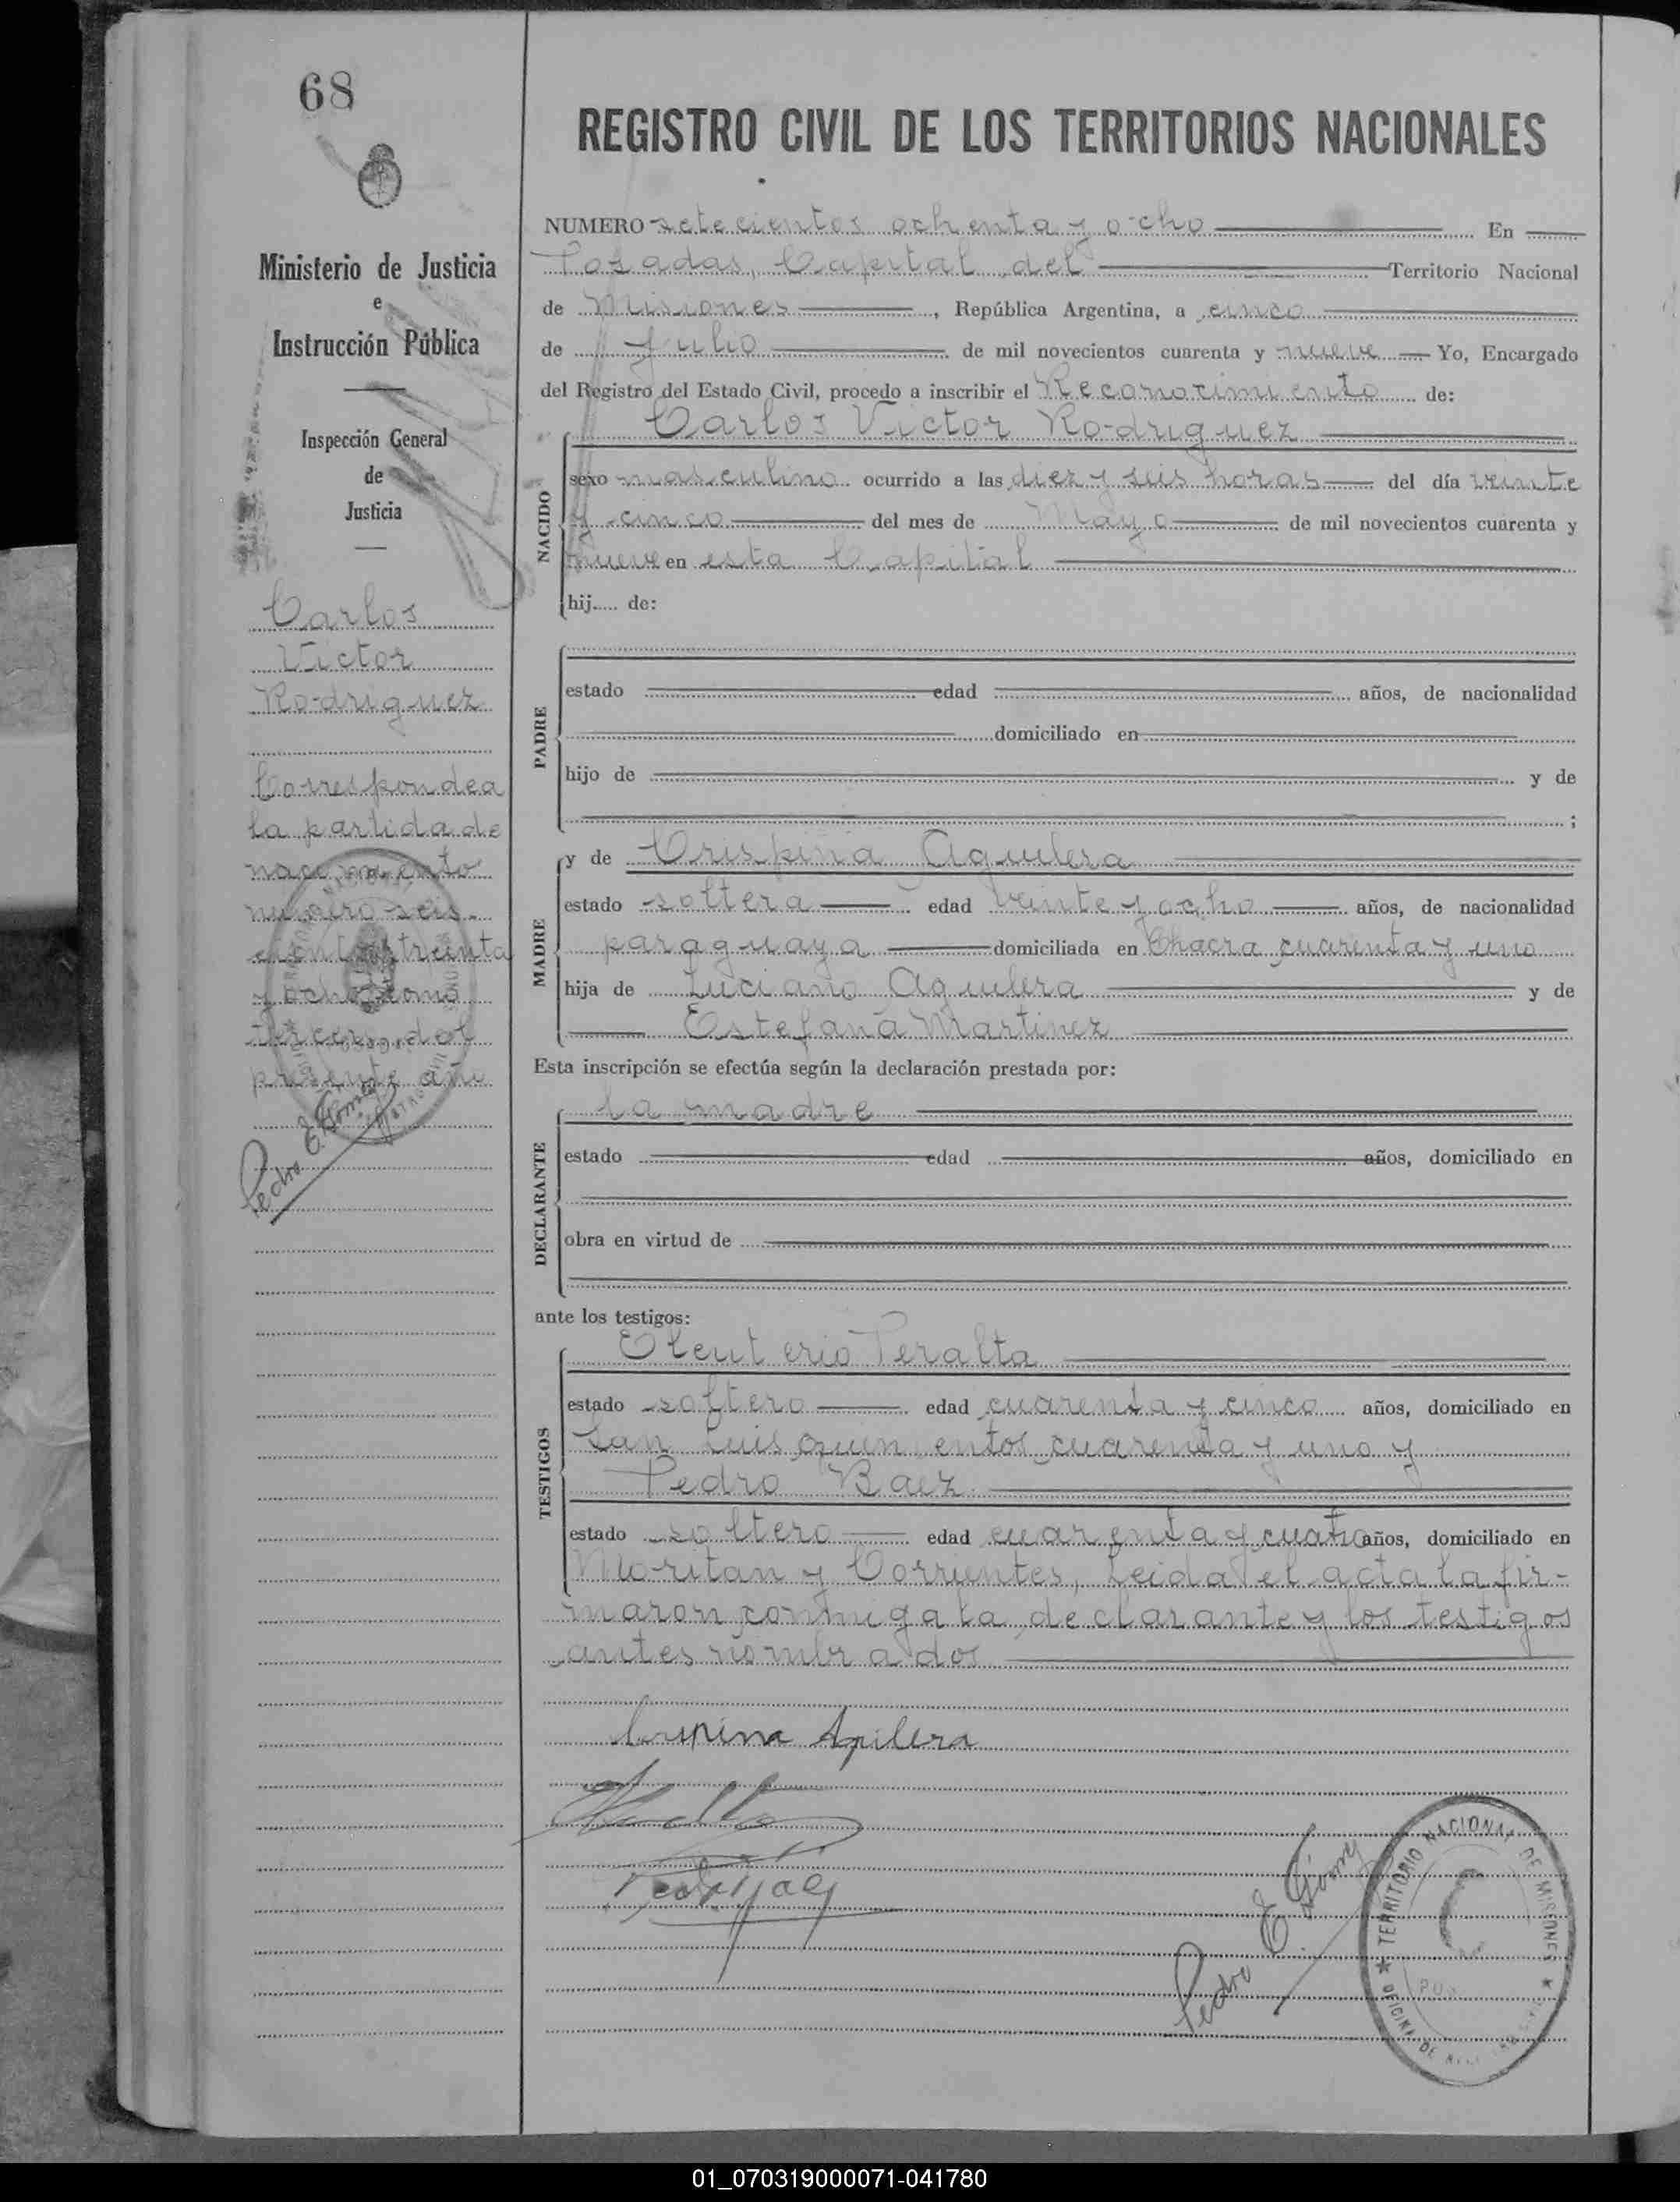 68
REGISTRO CIVIL DE LOS TERRITORIOS NACIONALES
Ministerio de Justicia
e
Instrucción Pública
Inspección General
de
Justicia
Carlos
Victor
Rodriguez
Corresponde a
la partida de
nacimiento
número seis
cientos treinta
y ocho tomo
tercero del
presente año
Pedro E. Gómez
NUMERO setecientos ochenta y ocho En
Posadas, Capital del Territorio Nacional
de Misiones, República Argentina, a cinco
de Julio de mil novecientos cuarenta y nueve Yo, Encargado
del Registro del Estado Civil, procedo a inscribir el Reconocimiento de:
Carlos Victor Rodriguez
NACIDO
sexo masculino ocurrido a las diez y seis horas del día veinte
y cinco del mes de Mayo de mil novecientos cuarenta y
nueve en esta Capital
hij..... de:
PADRE
estado edad años, de nacionalidad
domiciliado en
hijo de y de
;
MADRE
y de Crispina Aguilera
estado soltera edad veinte y ocho años, de nacionalidad
paraguaya domiciliada en Chacra cuarenta y uno
hija de Luciano Aguilera y de
Estefana Martinez
Esta inscripción se efectúa según la declaración prestada por:
DECLARANTE
la madre
estado edad años, domiciliado en
obra en virtud de
ante los testigos:
TESTIGOS
Eleuterio Peralta
estado soltero edad cuarenta y cinco años, domiciliado en
San Luis quinientos cuarenta y uno y
Pedro Baez
estado soltero edad cuarenta y cuatro años, domiciliado en
Moritan y Corrientes, Leida el acta la fir-
maron conmigo la declarante y los testigos
antes nombrados
Crispina Aguilera
Pedro Baez
Pedro E Gómez
TERRITORIO NACIONAL DE MISIONES
OFICINA DE
01_070319000071-041780